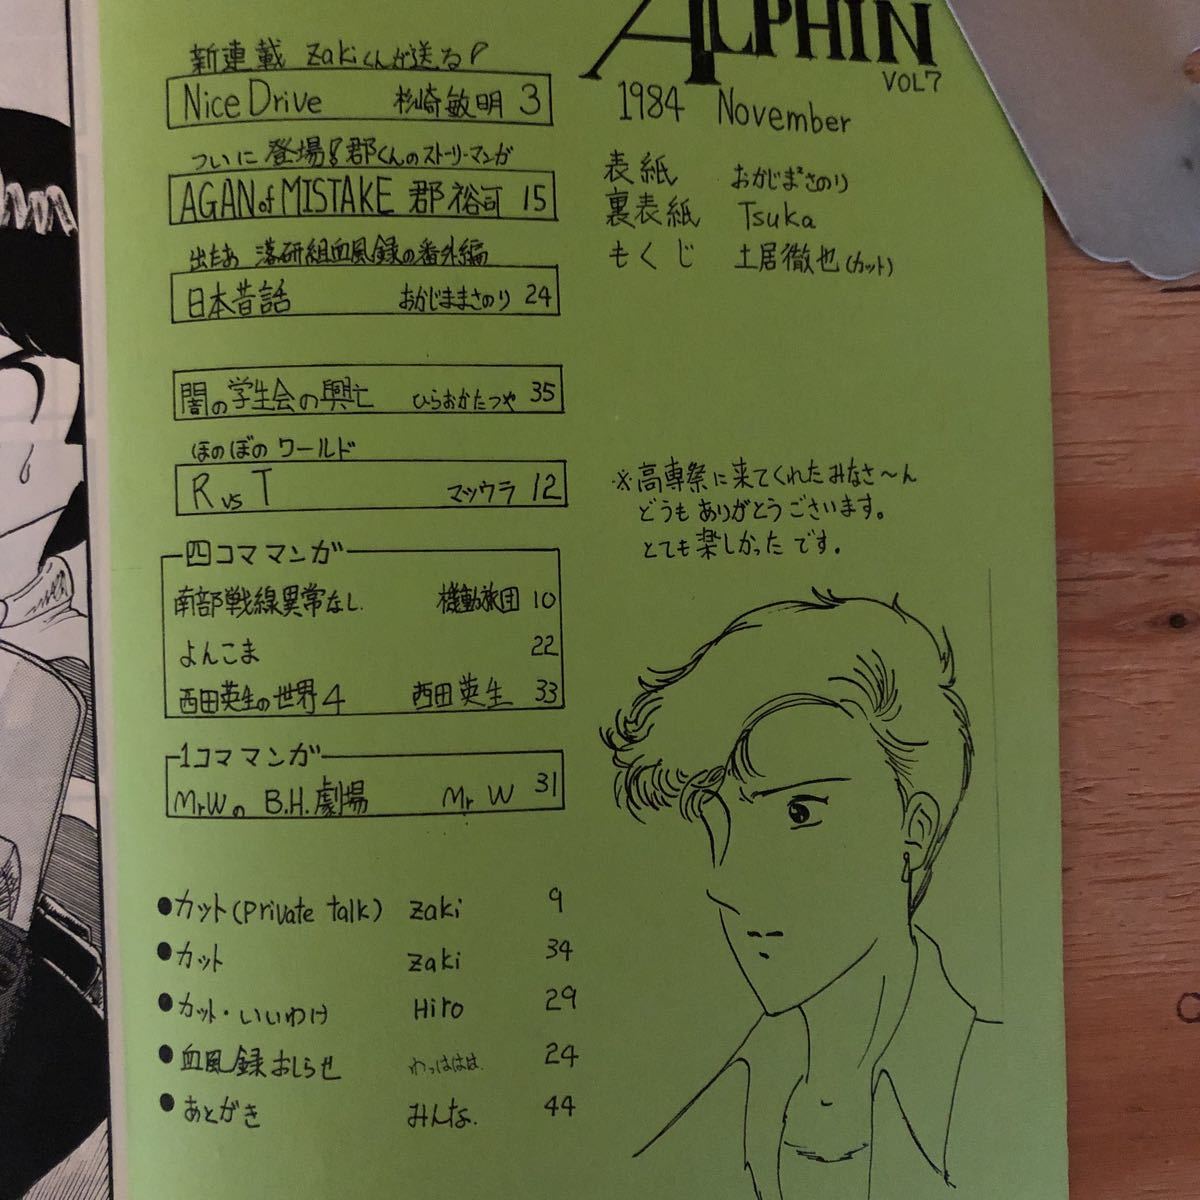 ALPHIN
VOL7
1984 November
表紙 おかじまさのり
裏表紙 Tsuka
もくじ 土居徹也(カット)
新連載 Zakiくんが送る!
Nice Drive 杉崎敏明 3
ついに登場!郡くんのストーリーマンガ
AGAN of MISTAKE 郡裕司 15
出たあ 落研組血風録の番外編
日本昔話 おかじままさのり 24
闇の学生会の興亡 ひらおかたつや 35
ほのぼのワールド
R vs T マツウラ 12
四コママンガ
南部戦線異常なし. 機動旅団 10
よんこま 22
西田英生の世界4 西田英生 33
1コママンガ
MrWの B.H.劇場 Mr W 31
●カット(private talk) Zaki 9
●カット Zaki 34
●カット・いいわけ Hiro 29
●血風録おしらせ わっははは. 24
●あとがき みんな. 44
※高専祭に来てくれたみなさ〜ん
どうもありがとうございます。
とても楽しかったです。